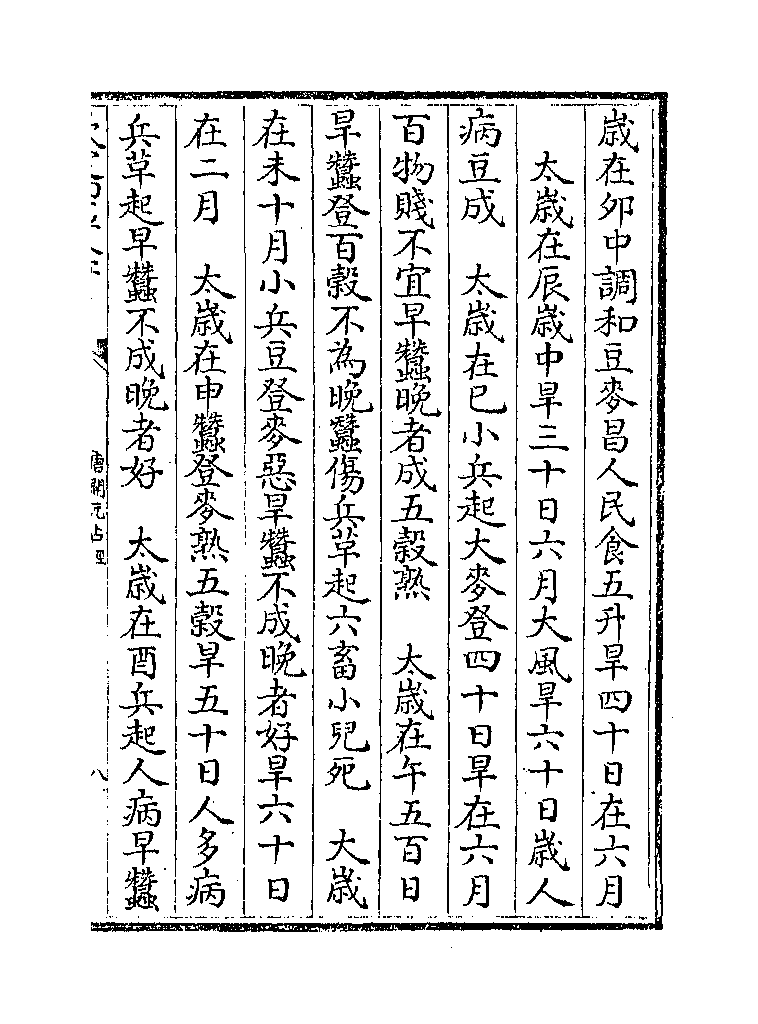 歳在夘中調和豆麥昌人民食五升旱四十日在六月
太歳在辰歳中旱三十日六月大風旱六十日歳人
病豆成　太歳在巳小兵起大麥登四十日旱在六月
百物賤不宜早蠶晚者成五榖熟　太歳在午五百日
旱蠶登百榖不為晚蠶傷兵草起六畜小兒死　大歳
在未十月小兵豆登麥惡旱蠶不成晚者好旱六十日
在二月　太歳在申蠶登麥熟五榖旱五十日人多病
兵草起早蠶不成晚者好　太歳在酉兵起人病早蠶
唐開元占經
八